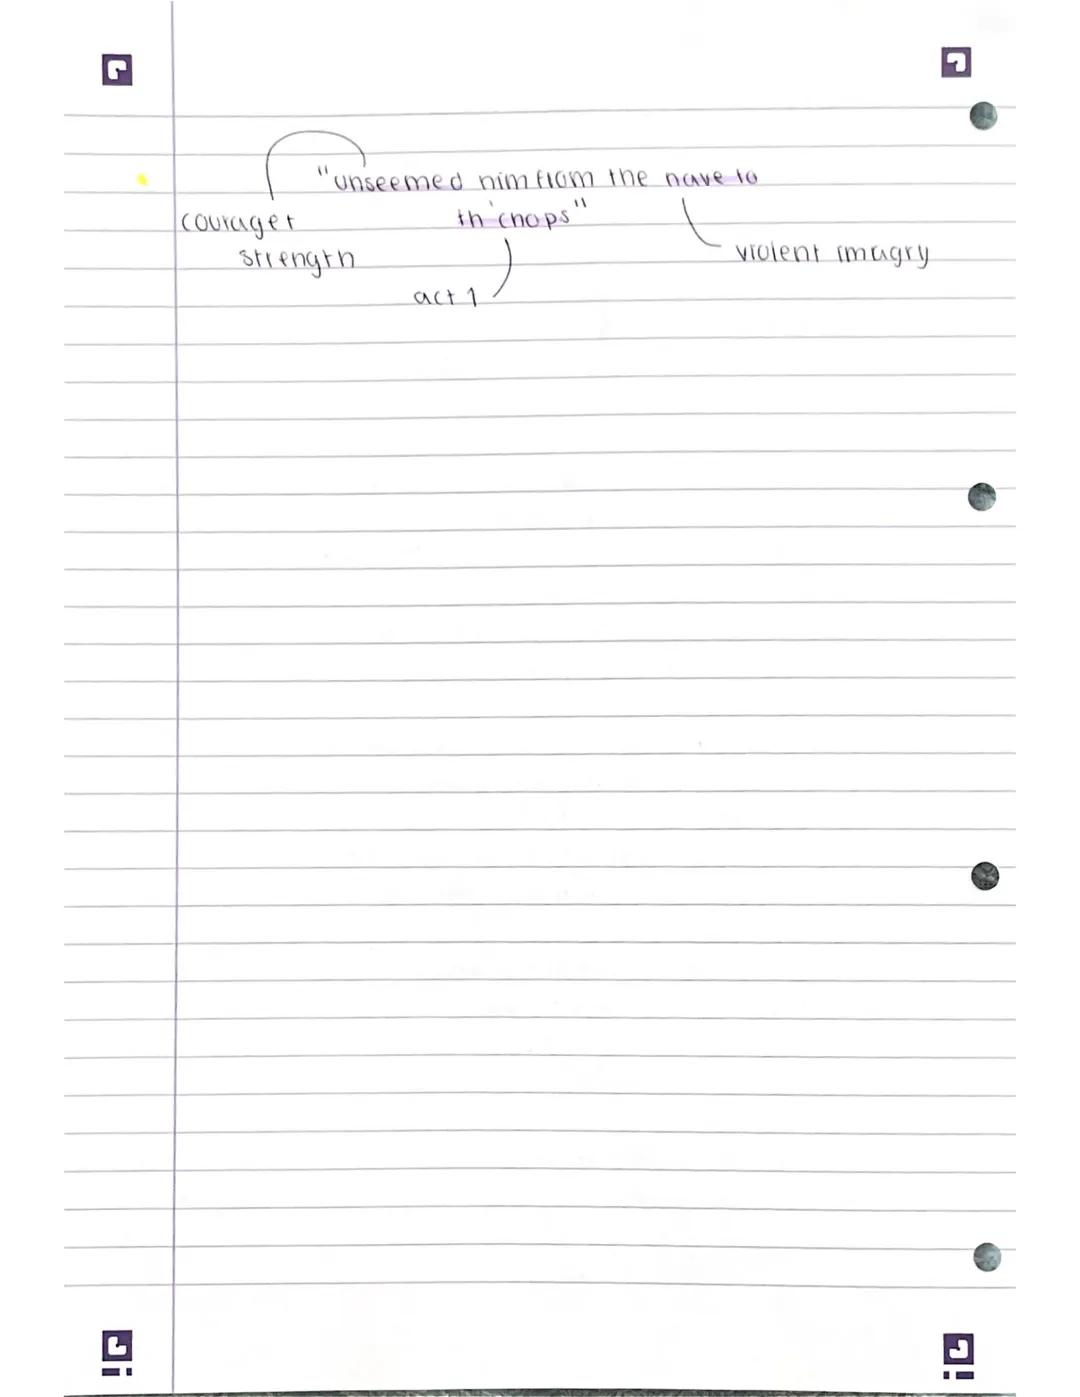 "unseemed him from the nave to
courage +
th'chops"
strength
violent imagry
act 1